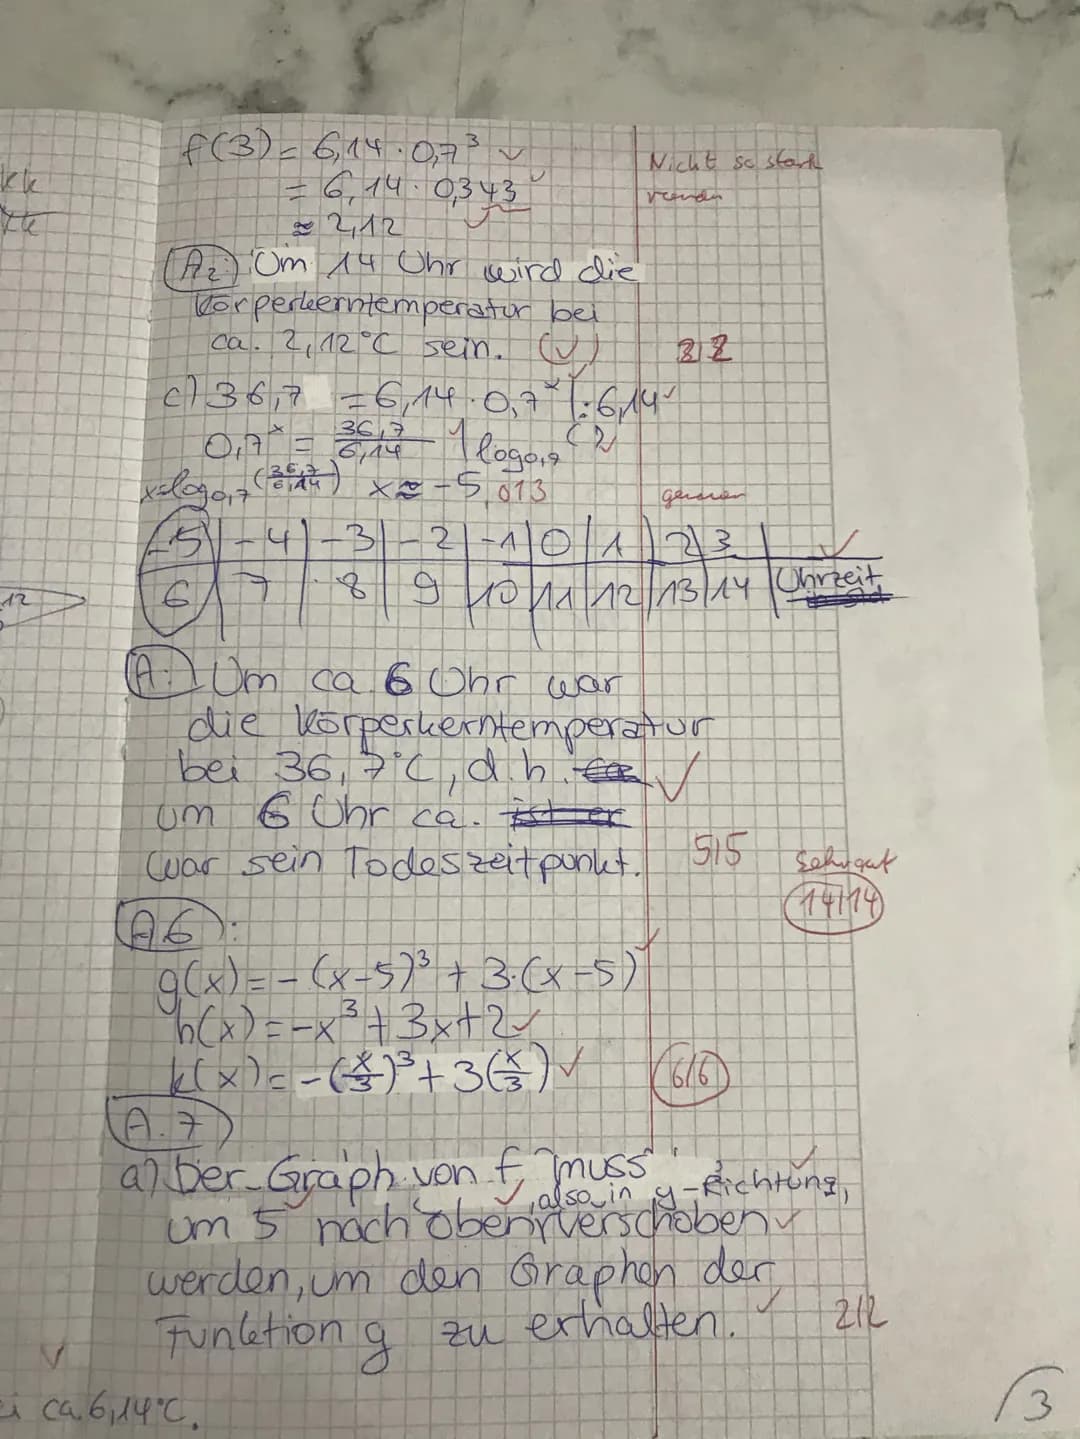 f(3) = 6,14 · 0,7³ ✓
Nicht so stark
runden
= 6,14 · 0,343
≈ 2,12 ✓
A2: Um 14 Uhr wird die
Körperkerntemperatur bei
ca. 2,12°C sein. (✓)
2/2
c) 36,7 = 6,14 · 0,7ˣ |: 6,14 ✓
0,7ˣ = 36,7/6,14 | log0,7 ( )
x = log0,7 (36,7/6,14) x ≈ -5,013
genauer
-5 | -4 | -3 | -2 | -1 | 0 | 1 | 2 | 3 | ✓
6 | 7 | 8 | 9 | 10 | 11 | 12 | 13 | 14 | Uhrzeit
12
A: Um ca. 6 Uhr war
die Körperkerntemperatur
bei 36,7°C, d.h. ✓
um 6 Uhr ca.
war sein Todeszeitpunkt.
5/5
Sehr gut
14/14
A6:
g(x) = -(x-5)³ + 3·(x-5) ✓
h(x) = -x³ + 3x + 2 ✓
k(x) = -(x/3)³ + 3(x/3) ✓
6/6
A.7
a) Der Graph von f "muss"
, also in y-Richtung,
um 5 nach oben verschoben ✓
werden, um den Graphen der
Funktion g zu erhalten. ✓
2/2
ca. 6,14°C.
3